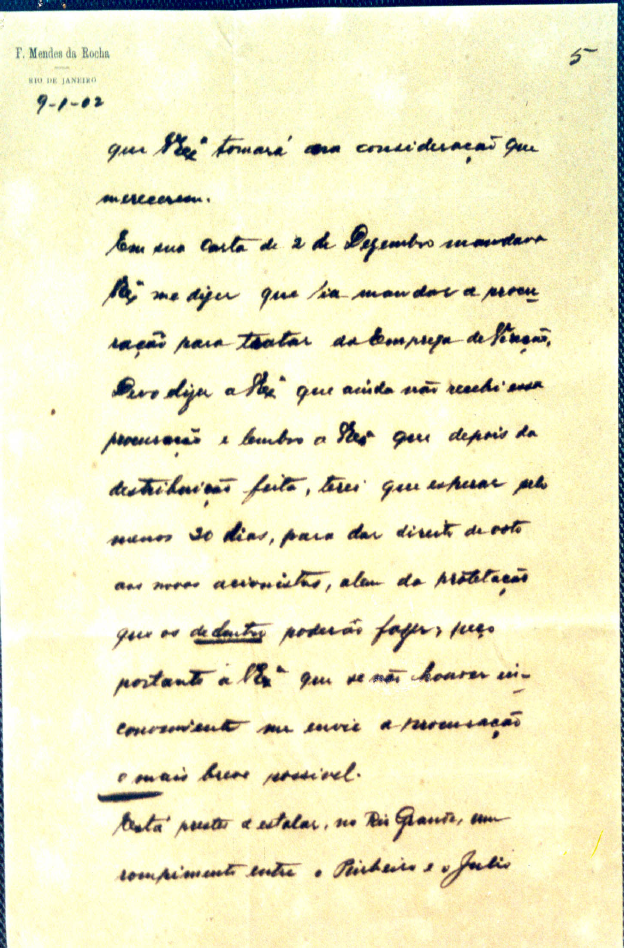 F. Mendes da Rocha
RIO DE JANEIRO
9-1-02
5
que V Exª tomará na consideração que
merecerem.
Em sua carta de 2 de Dezembro mandava
V Exª me dizer que ia mandar a procu-
ração para tratar da Empreza de Viação.
Devo dizer a V Exª que ainda não recebi essa
procuração e lembro a V Exª que depois da
destribuição feita, terei que esperar pelo
menos 30 dias, para dar direito de voto
aos novos acionistas, alem da protelação
que os de dentro poderão fazer; peço
portanto a V Exª que se não houver in-
conveniente me envie a procuração
o mais breve possivel.
Está prestes a estalar, no Rio Grande, um
rompimento entre o Pinheiro e o Julio